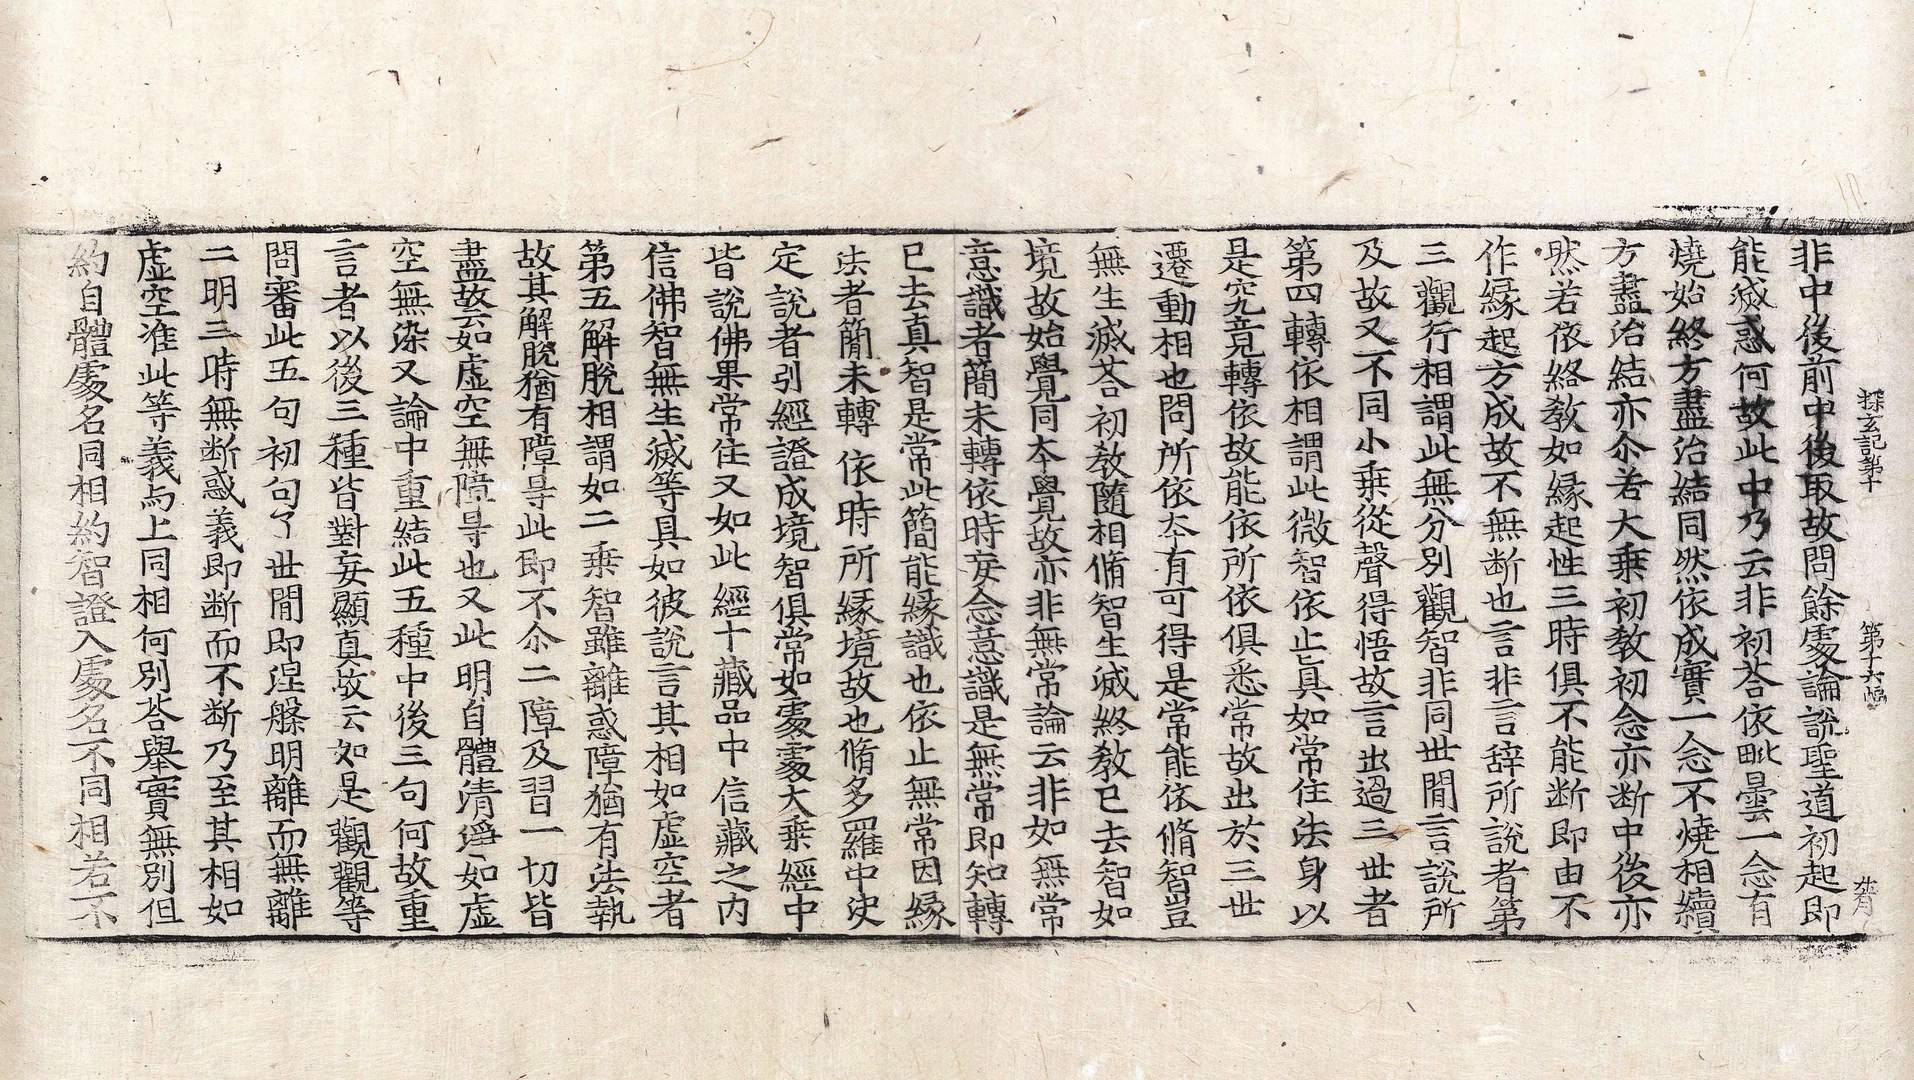 探玄記第十 第十六幅 
非中後前中後取故問餘處論說聖道初起即
能滅惑何故此中乃云非初荅依毗曇一念有
燒始終方盡治結同然依成實一念不燒相續
方盡治結亦尒若大乗初教初念亦断中後亦
然若依終教如緣起性三時俱不能断即由不
作緣起方成故不無断也言非言辞所說者第
三觀行相謂此無分別觀智非同世間言說所
及故又不同小乗從聲得悟故言出過三世者
第四轉依相謂此微智依止真如常住法身以
是究竟轉依故能依所依俱悉常故出於三世
遷動相也問所依夲有可得是常能依脩智豈
無生滅荅初教隨相脩智生滅終教已去智如
境故始覺同夲覺故亦非無常論云非如無常
意識者簡未轉依時妄念意識是無常即知轉
已去真智是常此簡能緣識也依止無常因緣
法者簡未轉依時所緣境故也脩多羅中决
定說者引經證成境智俱常如處處大乗經中
皆說佛果常住又如此經十藏品中信藏之内
信佛智無生滅等具如彼說言其相如虚空者
第五解脫相謂如二乗智雖離惑障猶有法執
故其解脫猶有障㝵此即不尒二障及習一切皆
盡故云如虚空無障㝵也又此明自體清淨如虚
空無染又論中重結此五種中後三句何故重
言者以後三種皆對妄顯真故云如是觀觀等
問審此五句初句了世間即涅槃明離而無離
二明三時無断惑義即断而不断乃至其相如
虚空准此等義与上同相何別荅舉實無別但
約自體處名同相約智證入處名不同相若不